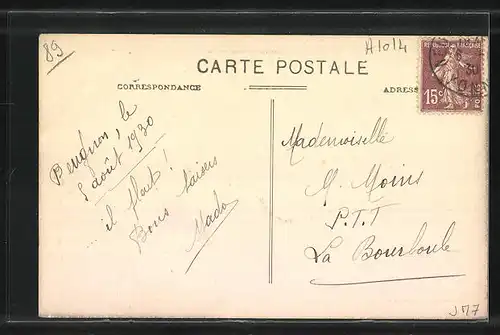 89
A1014
CARTE POSTALE
CORRESPONDANCE
ADRESSE
REPUBLIQUE FRANÇAISE
15c
le
5 août 1930
... il pleut!
Bons baisers
Mado
Mademoiselle
M. Moins
P.T.T
La Bourboule
J77